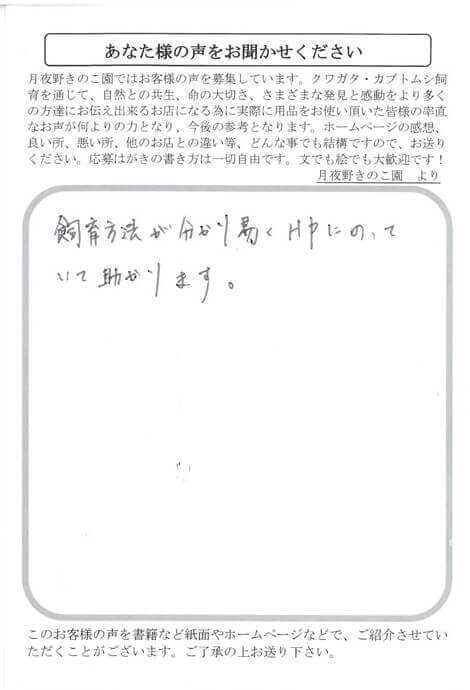 あなた様の声をお聞かせください
月夜野きのこ園ではお客様の声を募集しています。クワガタ・カブトムシ飼
育を通じて、自然との共生、命の大切さ、さまざまな発見と感動をより多く
の方達にお伝え出来るお店になる為に実際に用品をお使い頂いた皆様の率直
なお声が何よりの力となり、今後の参考となります。ホームページの感想、
良い所、悪い所、他のお店との違い等、どんな事でも結構ですので、お送り
ください。応募はがきの書き方は一切自由です。文でも絵でも大歓迎です！
月夜野きのこ園　より
飼育方法が分かり易くHPにのって
いて助かります。
このお客様の声を書籍など紙面やホームページなどで、ご紹介させてい
ただくことがございます。ご了承の上お送り下さい。